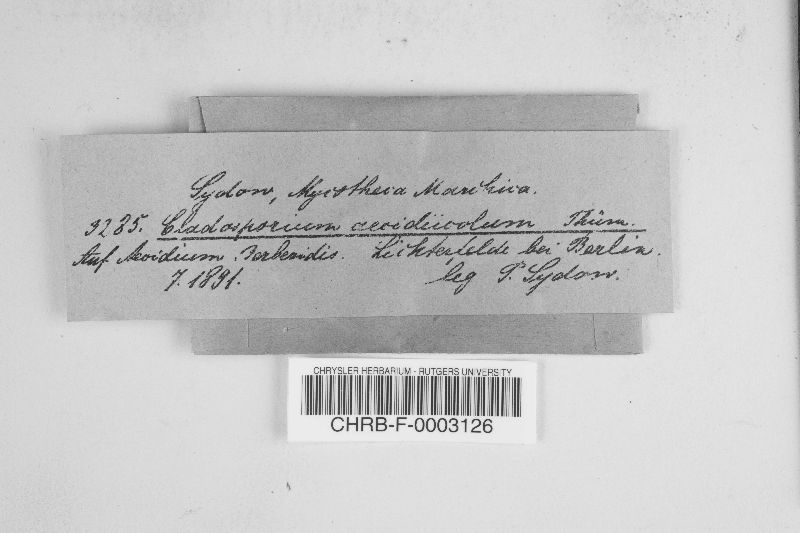 Sydow, Mycotheca Marchica.
3285. Cladosporium aecidiicolum Thüm.
Auf Aecidium Berberidis. Lichterfelde bei Berlin.
7.1891. leg P. Sydow.
CHRYSLER HERBARIUM - RUTGERS UNIVERSITY
CHRB-F-0003126